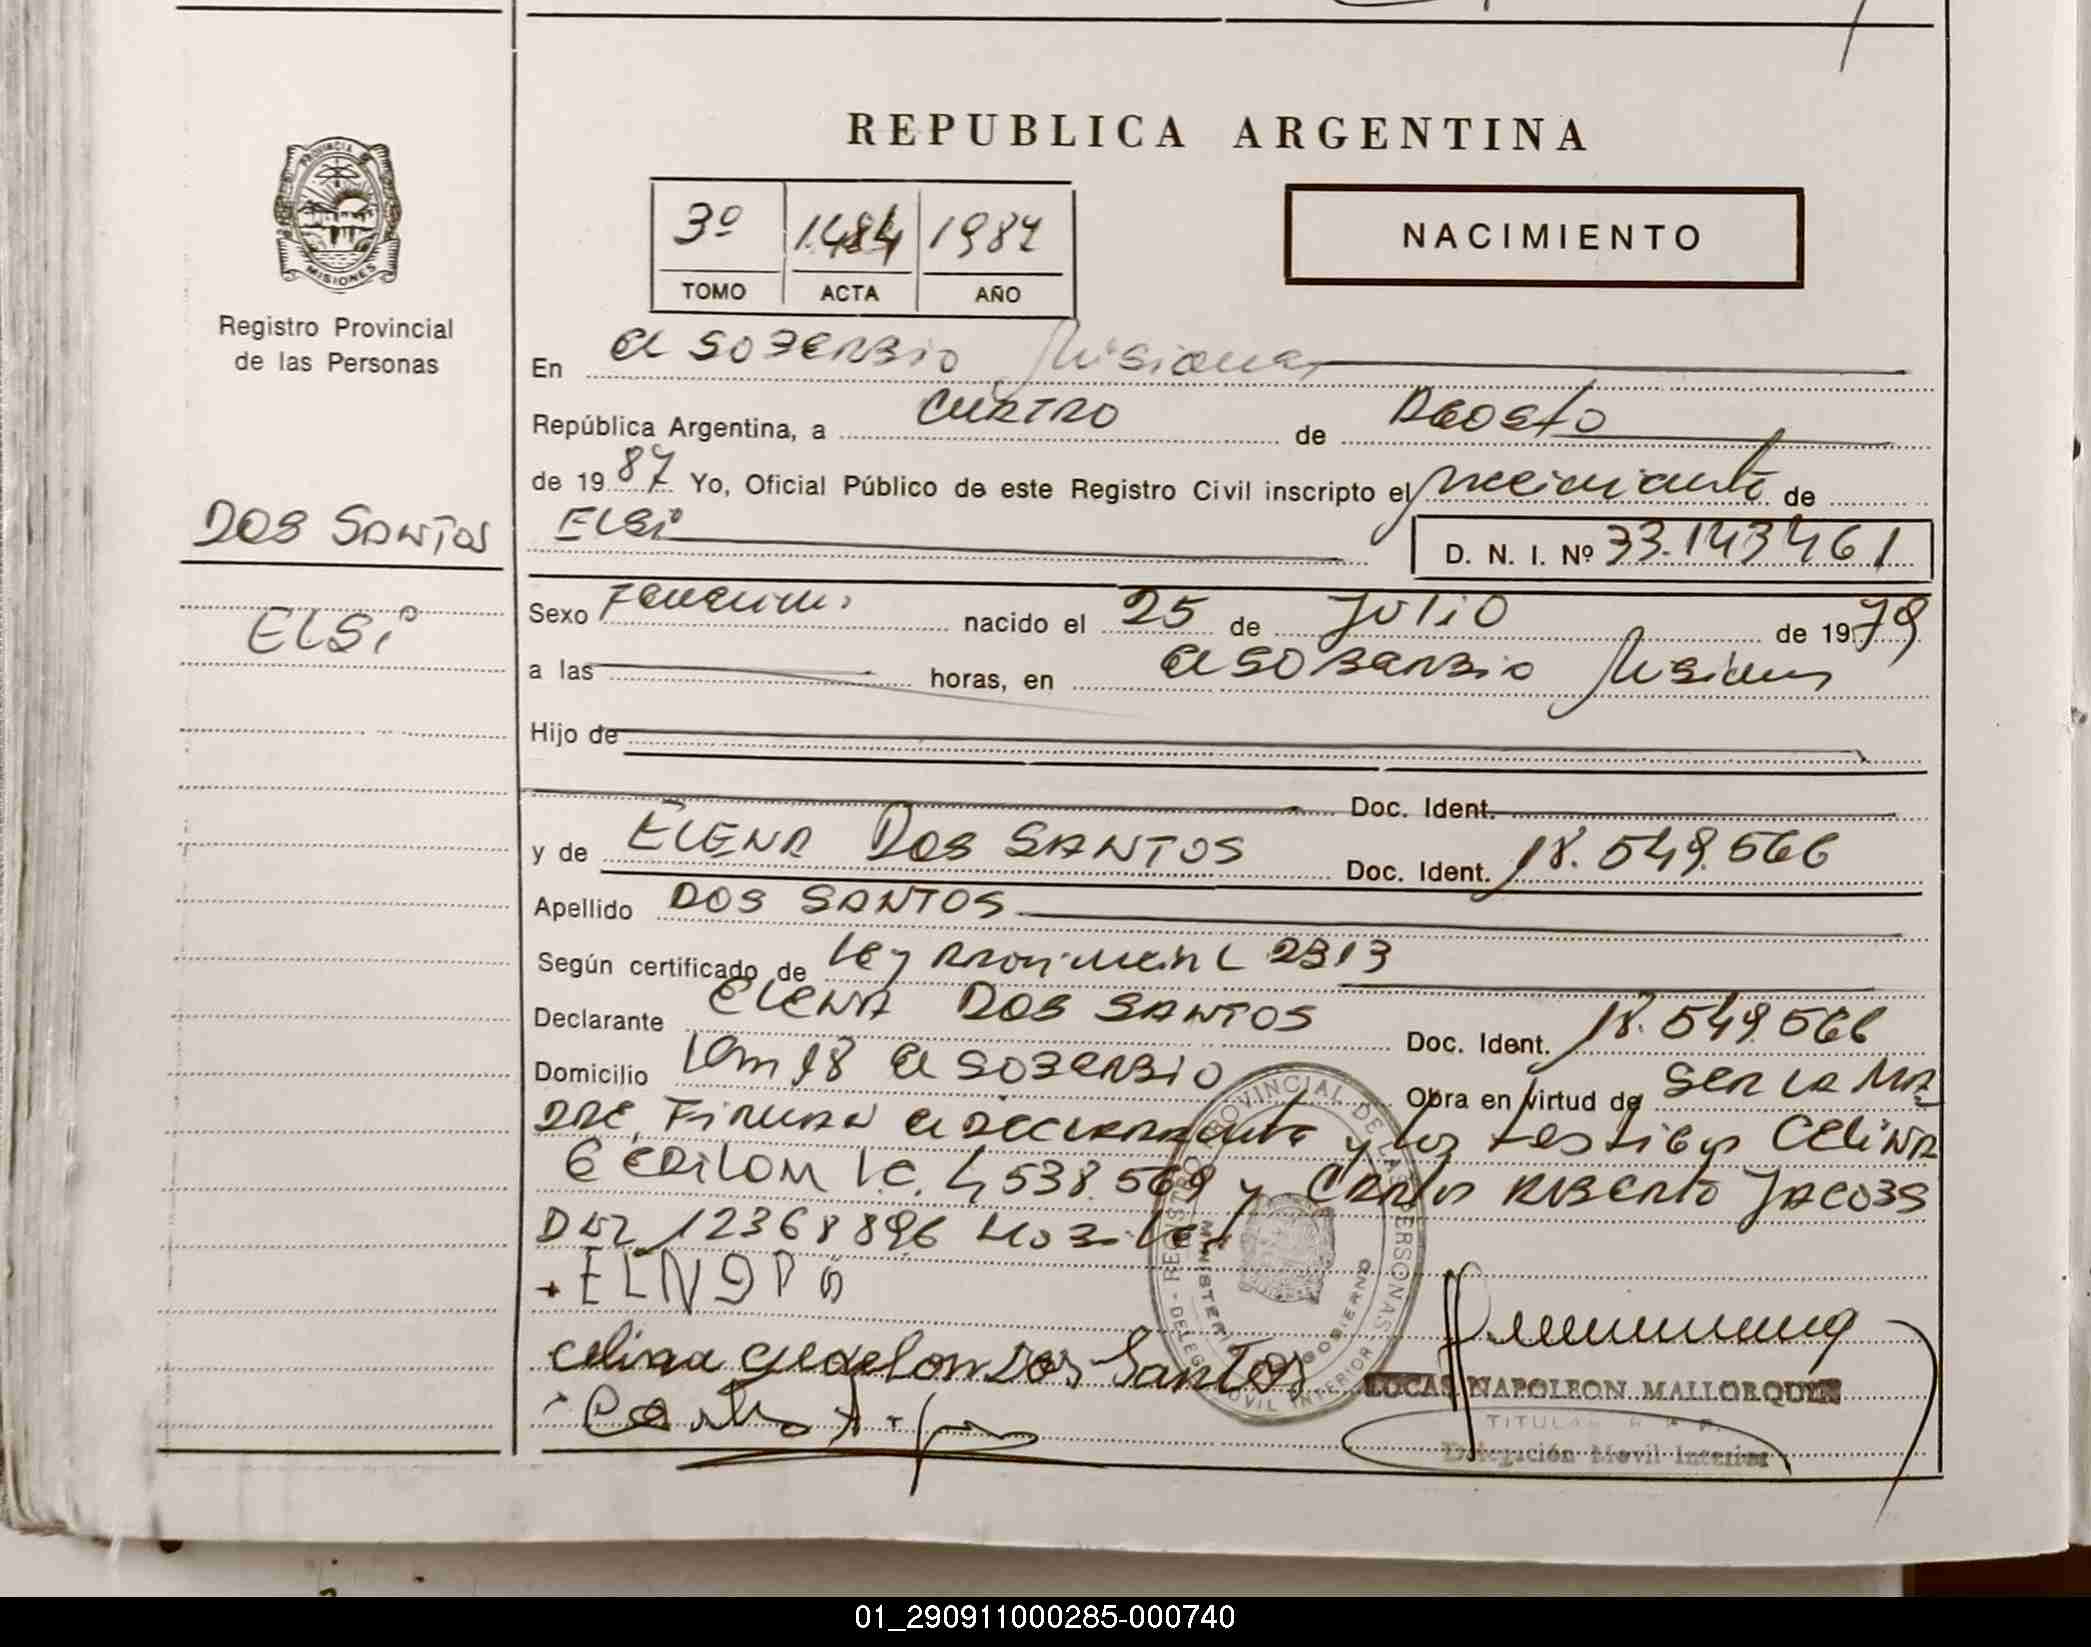 REPUBLICA ARGENTINA
PROVINCIA DE
MISIONES
Registro Provincial
de las Personas
3º 1484 1987
TOMO ACTA AÑO
NACIMIENTO
En El SOBERBIO Misiones
República Argentina, a CUATRO de AGOSTO
de 1987 Yo, Oficial Público de este Registro Civil inscripto el nacimiento de
DOS SANTOS
ELSi
ELSi D. N. I. Nº 33.143461
Sexo Femenino nacido el 25 de JULIO de 1979
a las horas, en El SOBERBIO Misiones
Hijo de
Doc. Ident.
y de ELENA DOS SANTOS Doc. Ident. 18.549.566
Apellido DOS SANTOS
Según certificado de Ley Provincial 2313
Declarante ELENA DOS SANTOS Doc. Ident. 18.549.566
Domicilio Km 18 El SOBERBIO Obra en virtud de SER LA MA
DRE, FIRMAN el DECLARANTE y los testigos CELINA
L.C. 4538.569 y CARLOS ROBERTO JACOBS
DNI 12368896
+ ELN
Celina Gedelon Dos Santos
REGISTRO PROVINCIAL DE LAS PERSONAS
MINISTERIO GOBIERNO
- DELEG MOVIL INTERIOR
LUCAS NAPOLEON MALLORQUIN
TITULAR
Delegación Movil Interior
01_290911000285-000740